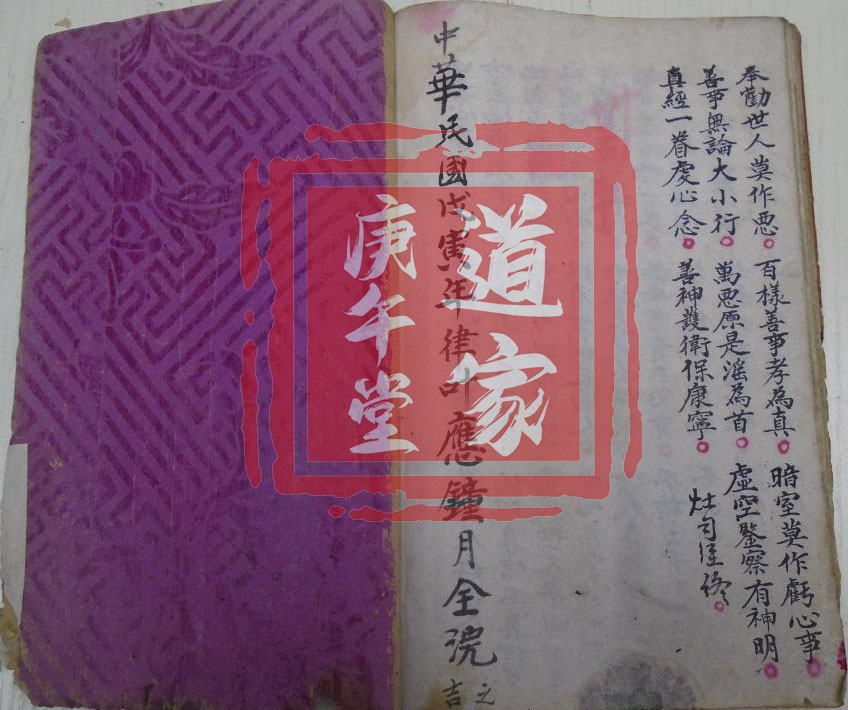 奉勸世人莫作恶。百樣善事孝為真。暗室莫作虧心事。
善事無論大小行。萬恶原是滛為首。虛空鑒察有神明。
真經一眷虔心念。善神護衛保康寧。灶司
中華民國戊寅年律叶應鐘月全浣之吉
道家
庚午堂